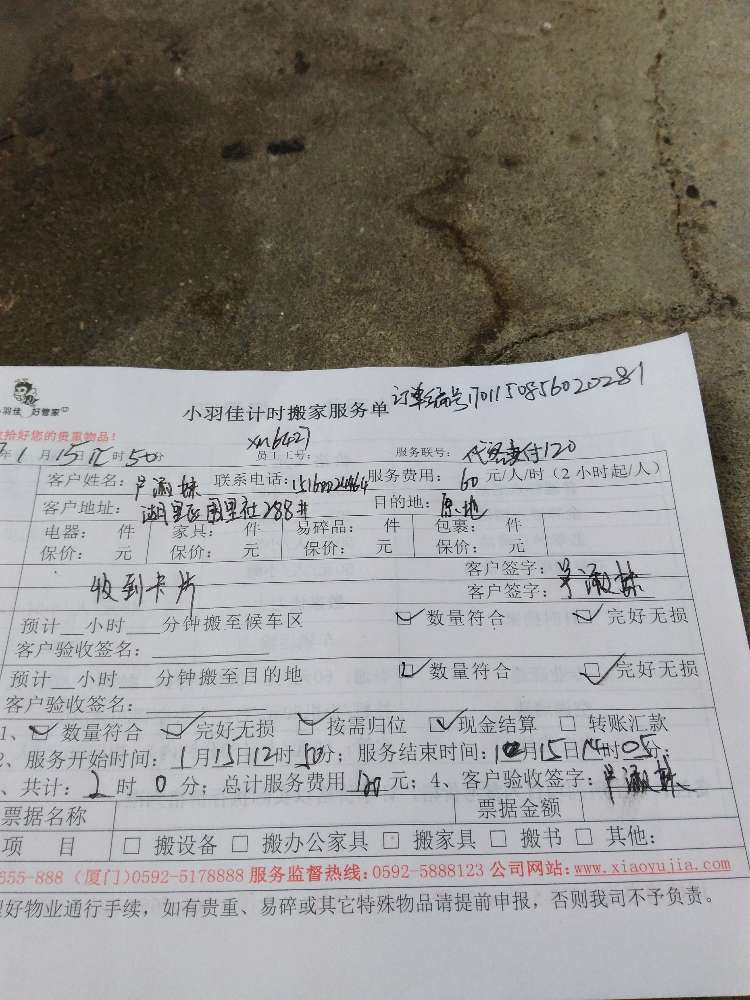 小羽佳 好管家
小羽佳计时搬家服务单 订单编号1701150856020281
拾好您的贵重物品!
年1月15日12时50分 员工工号: xm6427 服务联号: 120
客户姓名: 联系电话: 服务费用: 60元/人/时(2小时起/人)
客户地址: 湖里区围里社288# 目的地: 原地
电器: 件 家具: 件 易碎品: 件 包裹: 件
保价: 元 保价: 元 保价: 元 保价: 元
收到卡片 客户签字:
客户签字:
预计__小时___分钟搬至候车区 ☑数量符合 ☑完好无损
客户验收签名:
预计__小时___分钟搬至目的地 ☑数量符合 ☑完好无损
客户验收签名:
1、☑数量符合 ☑完好无损 ☑按需归位 ☑现金结算 □转账汇款
2、服务开始时间: 1月15日12时50分; 服务结束时间: 1月15日14时05分;
、共计: 2时0分; 总计服务费用120元; 4、客户验收签字:
票据名称 票据金额
项 目 □搬设备 □搬办公家具 □搬家具 □搬书 □其他:
855-888 (厦门)0592-5178888 服务监督热线:0592-5888123 公司网站:www.xiaoyujia.com
好物业通行手续,如有贵重、易碎或其它特殊物品请提前申报,否则我司不予负责。